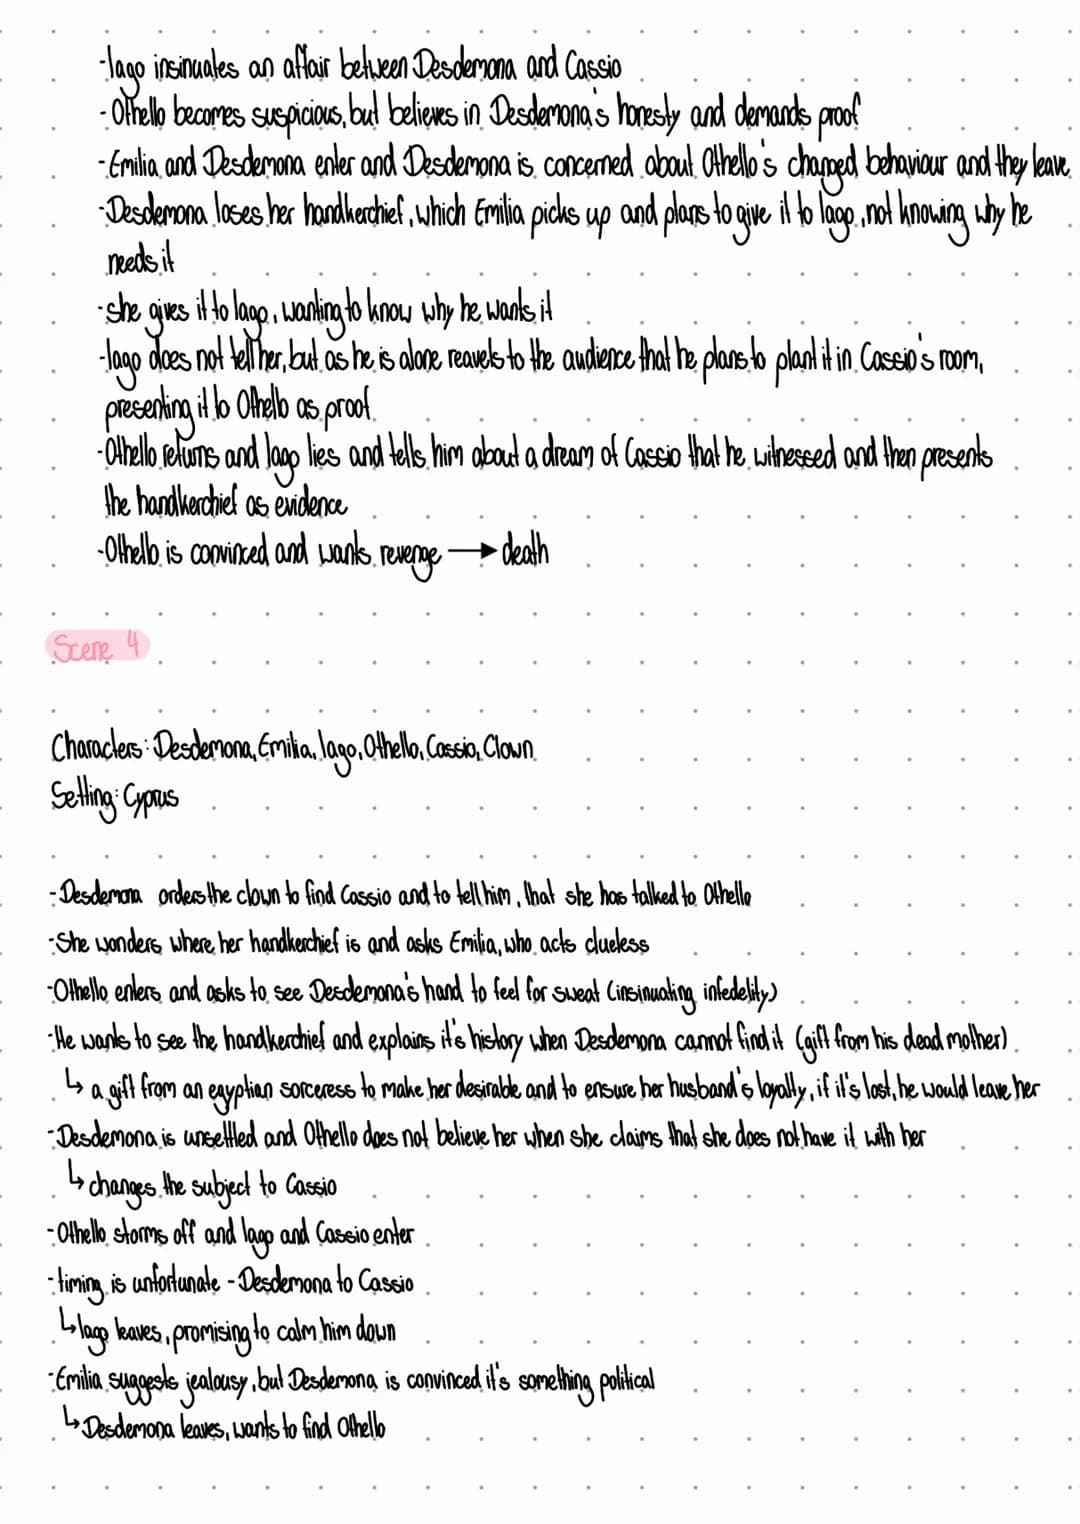 -Iago insinuates an affair between Desdemona and Cassio
-Othello becomes suspicious, but believes in Desdemona's honesty and demands proof
-Emilia and Desdemona enter and Desdemona is concerned about Othello's changed behaviour and they leave
-Desdemona loses her handkerchief, which Emilia picks up and plans to give it to Iago, not knowing why he
needs it
-she gives it to Iago, wanting to know why he wants it
-Iago does not tell her, but as he is alone reavels to the audience that he plans to plant it in Cassio's room,
presenting it to Othello as proof
-Othello returns and Iago lies and tells him about a dream of Cassio that he witnessed and then presents
the handkerchief as evidence
-Othello is convinced and wants revenge → death
Scene 4
Characters: Desdemona, Emilia, Iago, Othello, Cassio, Clown
Setting: Cyprus
-Desdemona orders the clown to find Cassio and to tell him, that she has talked to Othello
-She wonders where her handkerchief is and asks Emilia, who acts clueless
-Othello enters and asks to see Desdemona's hand to feel for sweat (insinuating infedelity)
-He wants to see the handkerchief and explains it's history when Desdemona cannot find it (gift from his dead mother)
↳ a gift from an egyptian sorceress to make her desirable and to ensure her husband's loyalty, if it's lost, he would leave her
-Desdemona is unsettled and Othello does not believe her when she claims that she does not have it with her
↳ changes the subject to Cassio
-Othello storms off and Iago and Cassio enter
-timing is unfortunate - Desdemona to Cassio
↳ Iago leaves, promising to calm him down
-Emilia suggests jealousy, but Desdemona is convinced it's something political
↳ Desdemona leaves, wants to find Othello